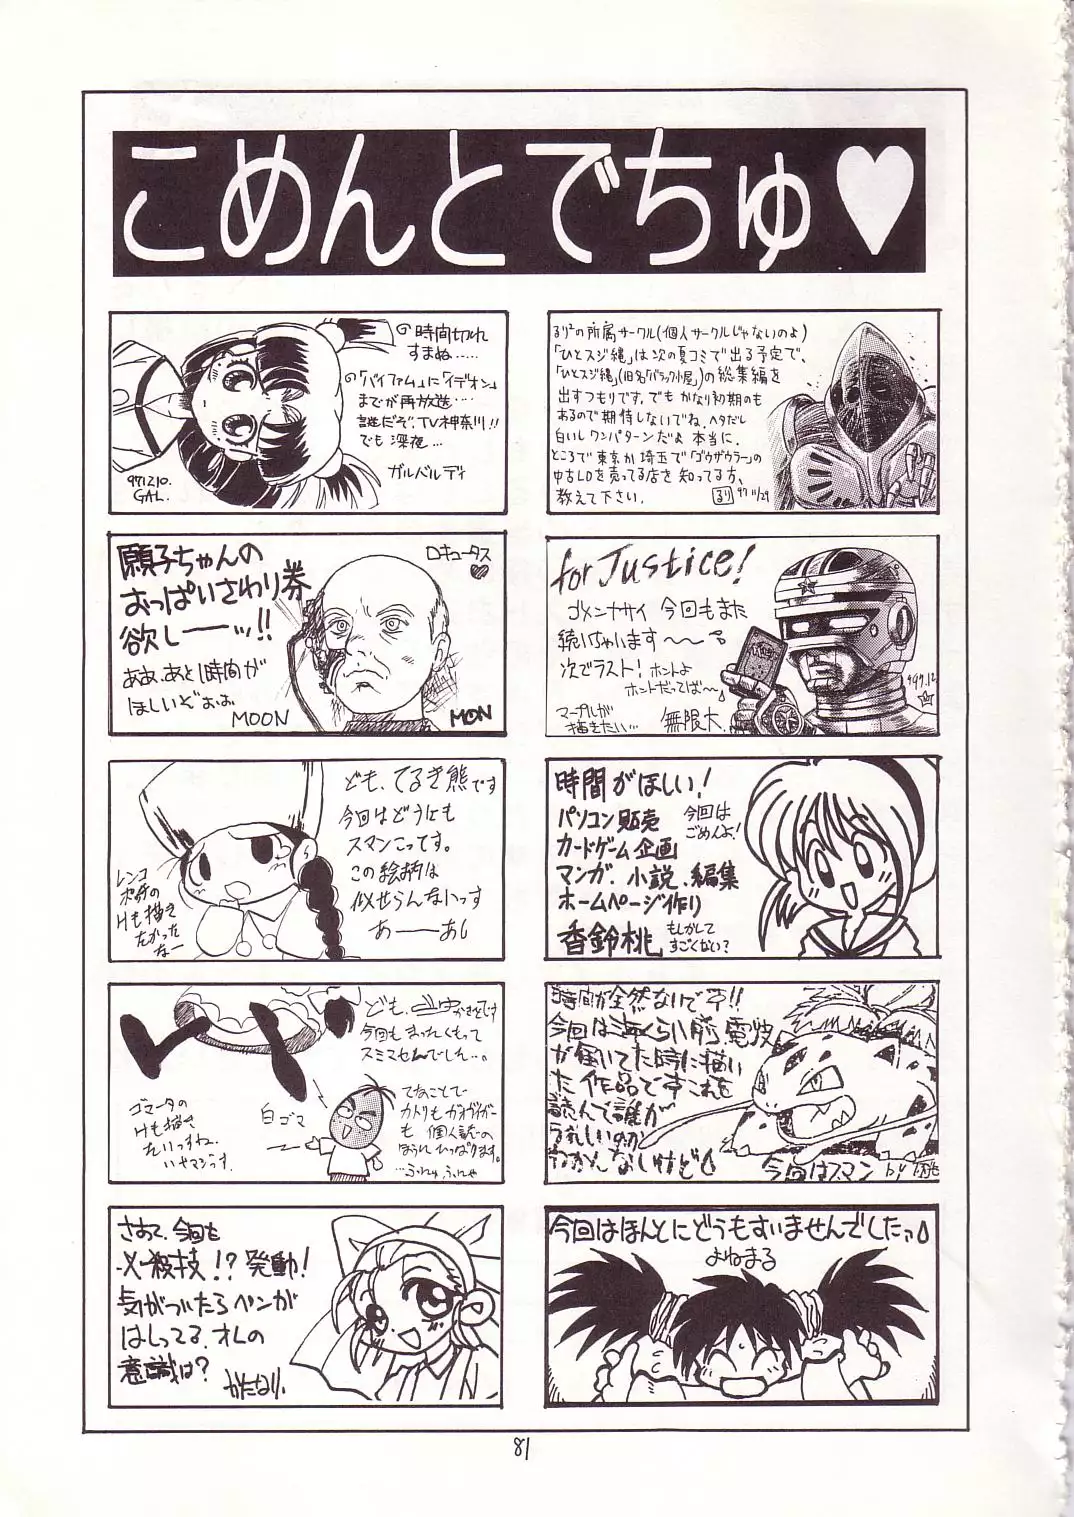 こめんとでちゅ♥
るり²の所属サークル(個人サークルじゃないのよ)
「ひとスジ縄」は次の夏コミで出る予定で、
「ひとスジ縄」(旧名「バラック小屋」)の総集編を
出すつもりです。でも かなり初期のも
あるので期待しないでね。ヘタだし
白いしワンパターンだよ 本当に。
ところで 東京か 埼玉で「ゴウザウラー」の
中古LDを売ってる店を 知ってる方、
教えて下さい。
るり 97 11/29
時間切れ
すまぬ……
「バイファム」に「イデオン」
までが再放送……
謎だぞ、TV神奈川!!
でも 深夜…
ガルベルディ
971210.
GAL.
for Justice!
ゴメンナサイ 今回もまた
続いちゃいます〜〜
次でラスト! ホントよ
ホントだってば〜
マーブルが
描きたい…
無限大
'97.12
願子ちゃんの
おっぱいさわり券
欲しーーッ!!
ああ、あと1時間が
ほしいぞぉぉ
MOON
ロキュータス
MON
時間がほしい!
パソコン販売
今回は
ごめんよ!
カードゲーム企画
マンガ、小説、編集
ホームページ作り
香鈴桃
もしかして
すごくない?
ども、てるき熊です
今回はどうにも
スマンこってす。
この絵柄は
似せらんないっす
あーーあし
レンコ
Hも描き
たかった
なー
時間が全然ないです!!
今回は 電波
が届いてた時に描い
た作品です これを
読んで誰が
うれしいのか
わかんなしけど
今回はスマン by
ども、
今回もまったくもって
スミマセんでした…。
てなことで
カトリもガオガイガー
も 個人誌の
ほうにひっぱります。
…ふにゅ、ふにゃ
ゴマータの
Hも描き
たいっすね。
いやマジっす。
白ゴマ
今回はほんとにどうもすいませんでしたっ
よねまる
さあて、今回も
必殺技!? 発動!
気がついたらペンが
はしってる。オレの
意識は?
かたなり.
81